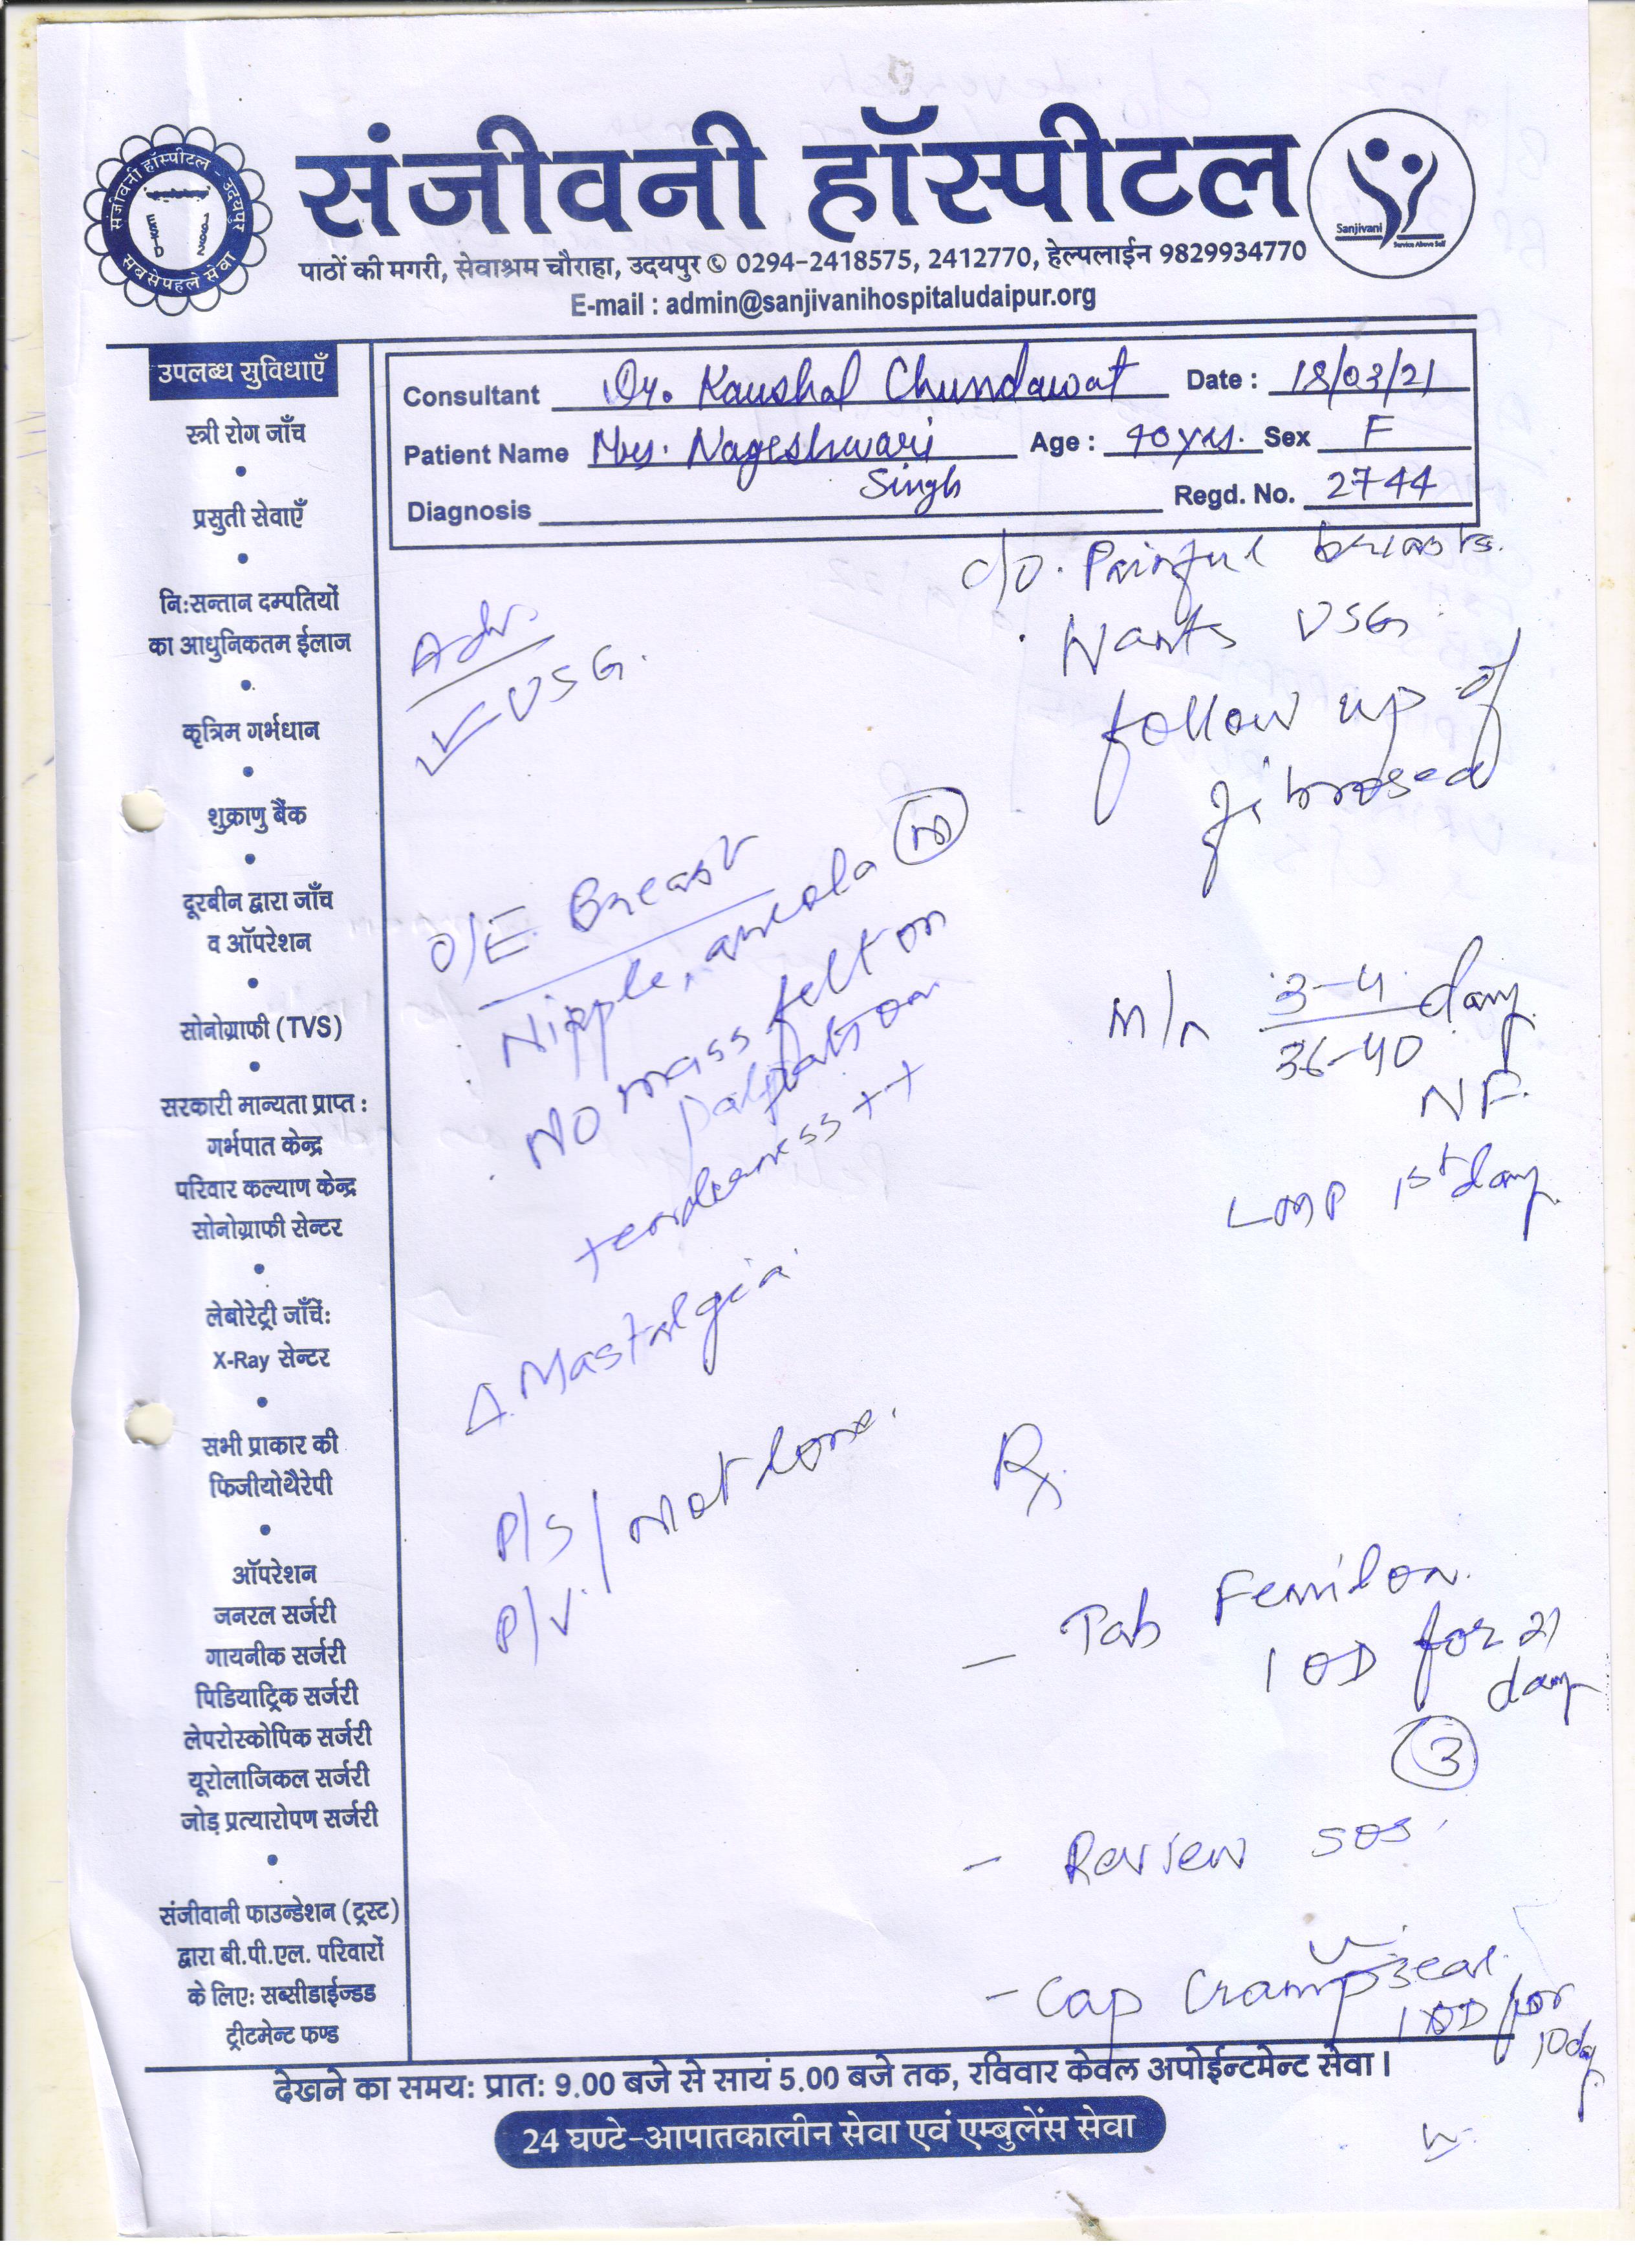 संजीवनी हॉस्पीटल
संजीवनी हॉस्पीटल - उदयपुर
सबसे पहले सेवा
Sanjivani
Service Above Self
पाठों की मगरी, सेवाश्रम चौराहा, उदयपुर ✆ 0294-2418575, 2412770, हेल्पलाईन 9829934770
E-mail : admin@sanjivanihospitaludaipur.org
Consultant Dr. Kaushal Chundawat Date : 18/03/21
Patient Name Mrs. Nageshwari Singh Age : 40 yrs. Sex F
Diagnosis Regd. No. 2744
उपलब्ध सुविधाएँ
स्त्री रोग जाँच
प्रसुती सेवाएँ
नि:सन्तान दम्पतियों
का आधुनिकतम ईलाज
कृत्रिम गर्भधान
शुक्राणु बैंक
दूरबीन द्वारा जाँच
व ऑपरेशन
सोनोग्राफी (TVS)
सरकारी मान्यता प्राप्त :
गर्भपात केन्द्र
परिवार कल्याण केन्द्र
सोनोग्राफी सेन्टर
लेबोरेट्री जाँचें:
X-Ray सेन्टर
सभी प्राकार की
फिजीयोथैरेपी
ऑपरेशन
जनरल सर्जरी
गायनीक सर्जरी
पिडियाट्रिक सर्जरी
लेपरोस्कोपिक सर्जरी
यूरोलाजिकल सर्जरी
जोड़ प्रत्यारोपण सर्जरी
संजीवानी फाउन्डेशन (ट्रस्ट)
द्वारा बी.पी.एल. परिवारों
के लिए: सब्सीडाईज्डड
ट्रीटमेन्ट फण्ड
c/o. Painful breasts.
Wants USG
follow up of
fibrosed
Adv.
USG.
O/E Breast
Nipple, areola (N)
No mass felt on
palpation
tenderness ++
Δ. Mastalgia
P/S / Not done.
P/V.
M/H 3-4 day
36-40
NF.
LMP 1st day
Rx
- Tab Femilon.
1 OD for 21
day
3
- Review SOS
- Cap Crampzear
1 BD for
10 day
देखने का समय: प्रात: 9.00 बजे से सायं 5.00 बजे तक, रविवार केवल अपोईन्टमेन्ट सेवा।
24 घण्टे-आपातकालीन सेवा एवं एम्बुलेंस सेवा